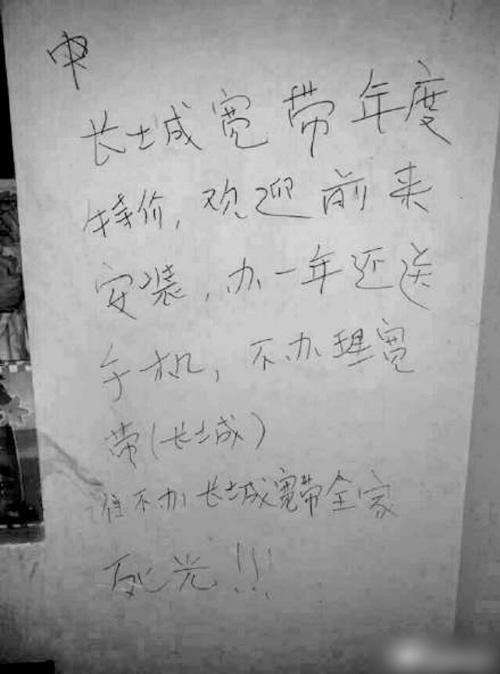 申
长城宽带年度
特价,欢迎前来
安装,办一年还送
手机,不办理宽
带(长城)
谁不办长城宽带全家
死光!!!